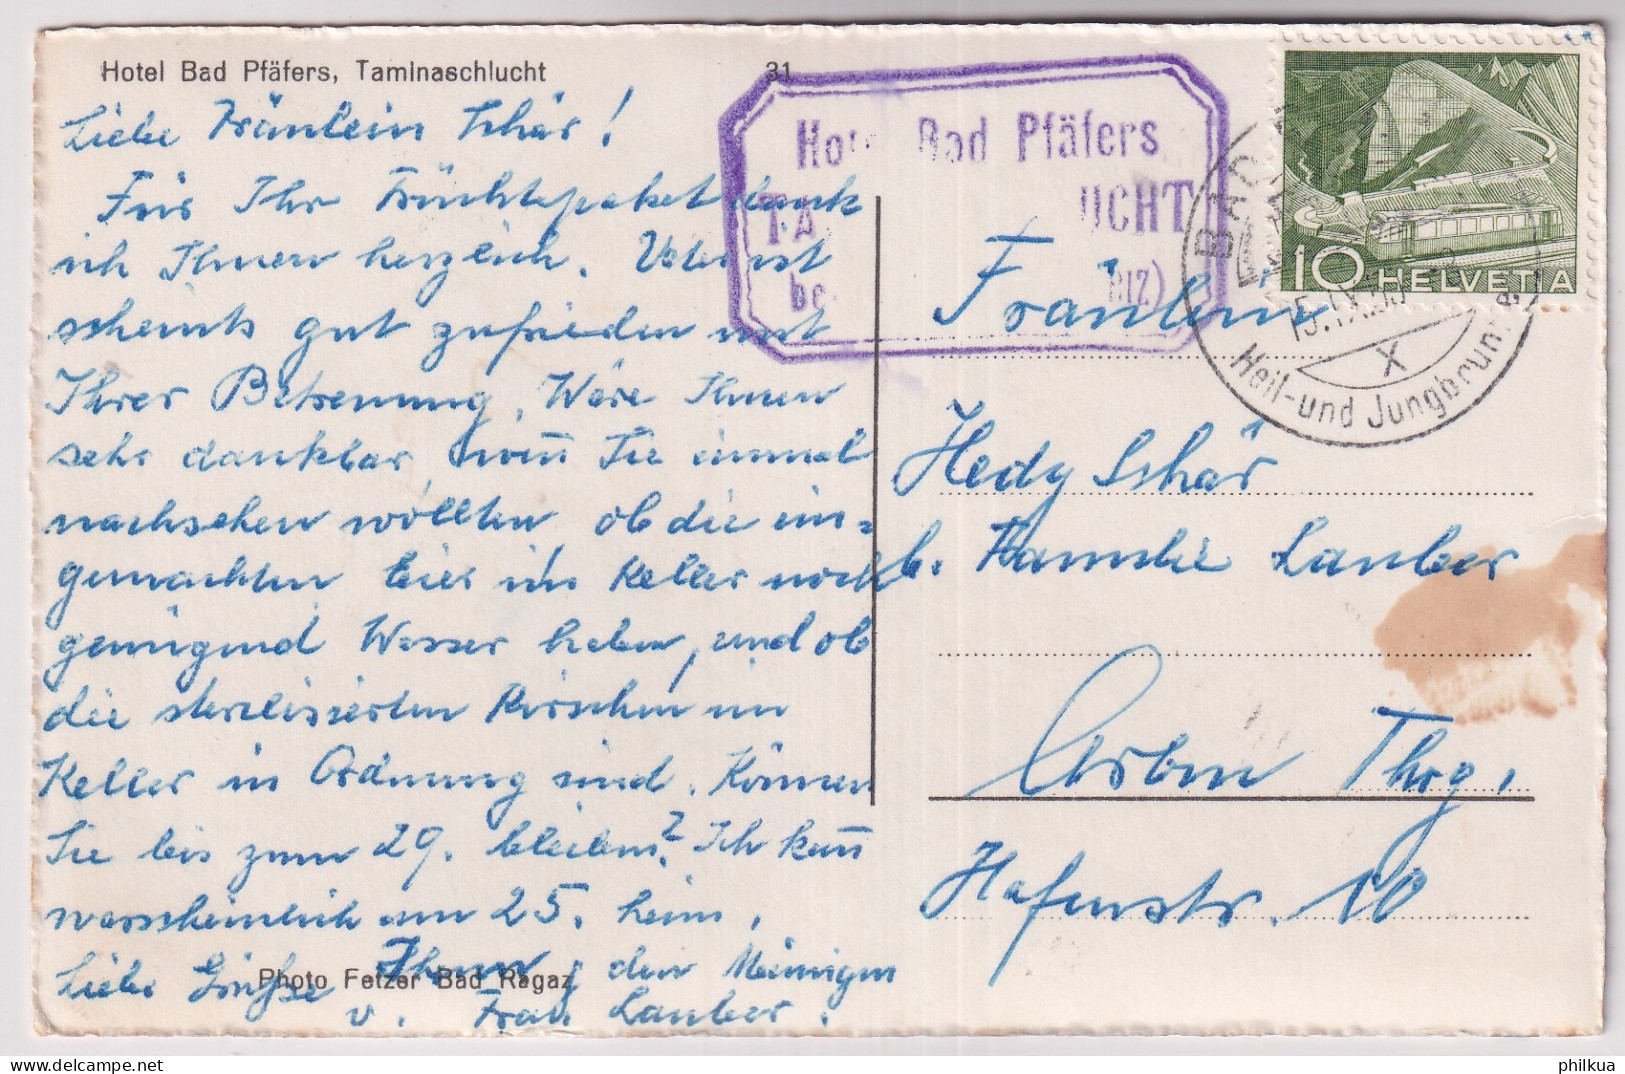 Hotel Bad Pfäfers, Taminaschlucht
31
Liebe Fräulein Schär!
Für Ihr Früchtepaket dank
ich Ihnen herzlich. Vater ist
scheints gut zufrieden mit
Ihrer Betreuung. Wäre Ihnen
sehr dankbar wenn Sie einmal
nachsehen wollten, ob die ein=
gemachten Eier im Keller noch
genügend Wasser haben, und ob
die sterilisierten Kirschen im
Keller in Ordnung sind. Können
Sie bis zum 29. bleiben? Ich kann
warscheinlich am 25. heim.
Liebe Grüsse Ihnen, den Meinigen
v. Frau Lauber.
Photo Fetzer Bad Ragaz
Hotel Bad Pfäfers
TA UCHT
be iz)
HELVETIA
10
BAD
15.IX.
X
Heil- und Jungbrunn
Fräulein
Hedy Schär
b. Familie Lauber
Arbon Thrg.
Hafenstr. 10
philkua